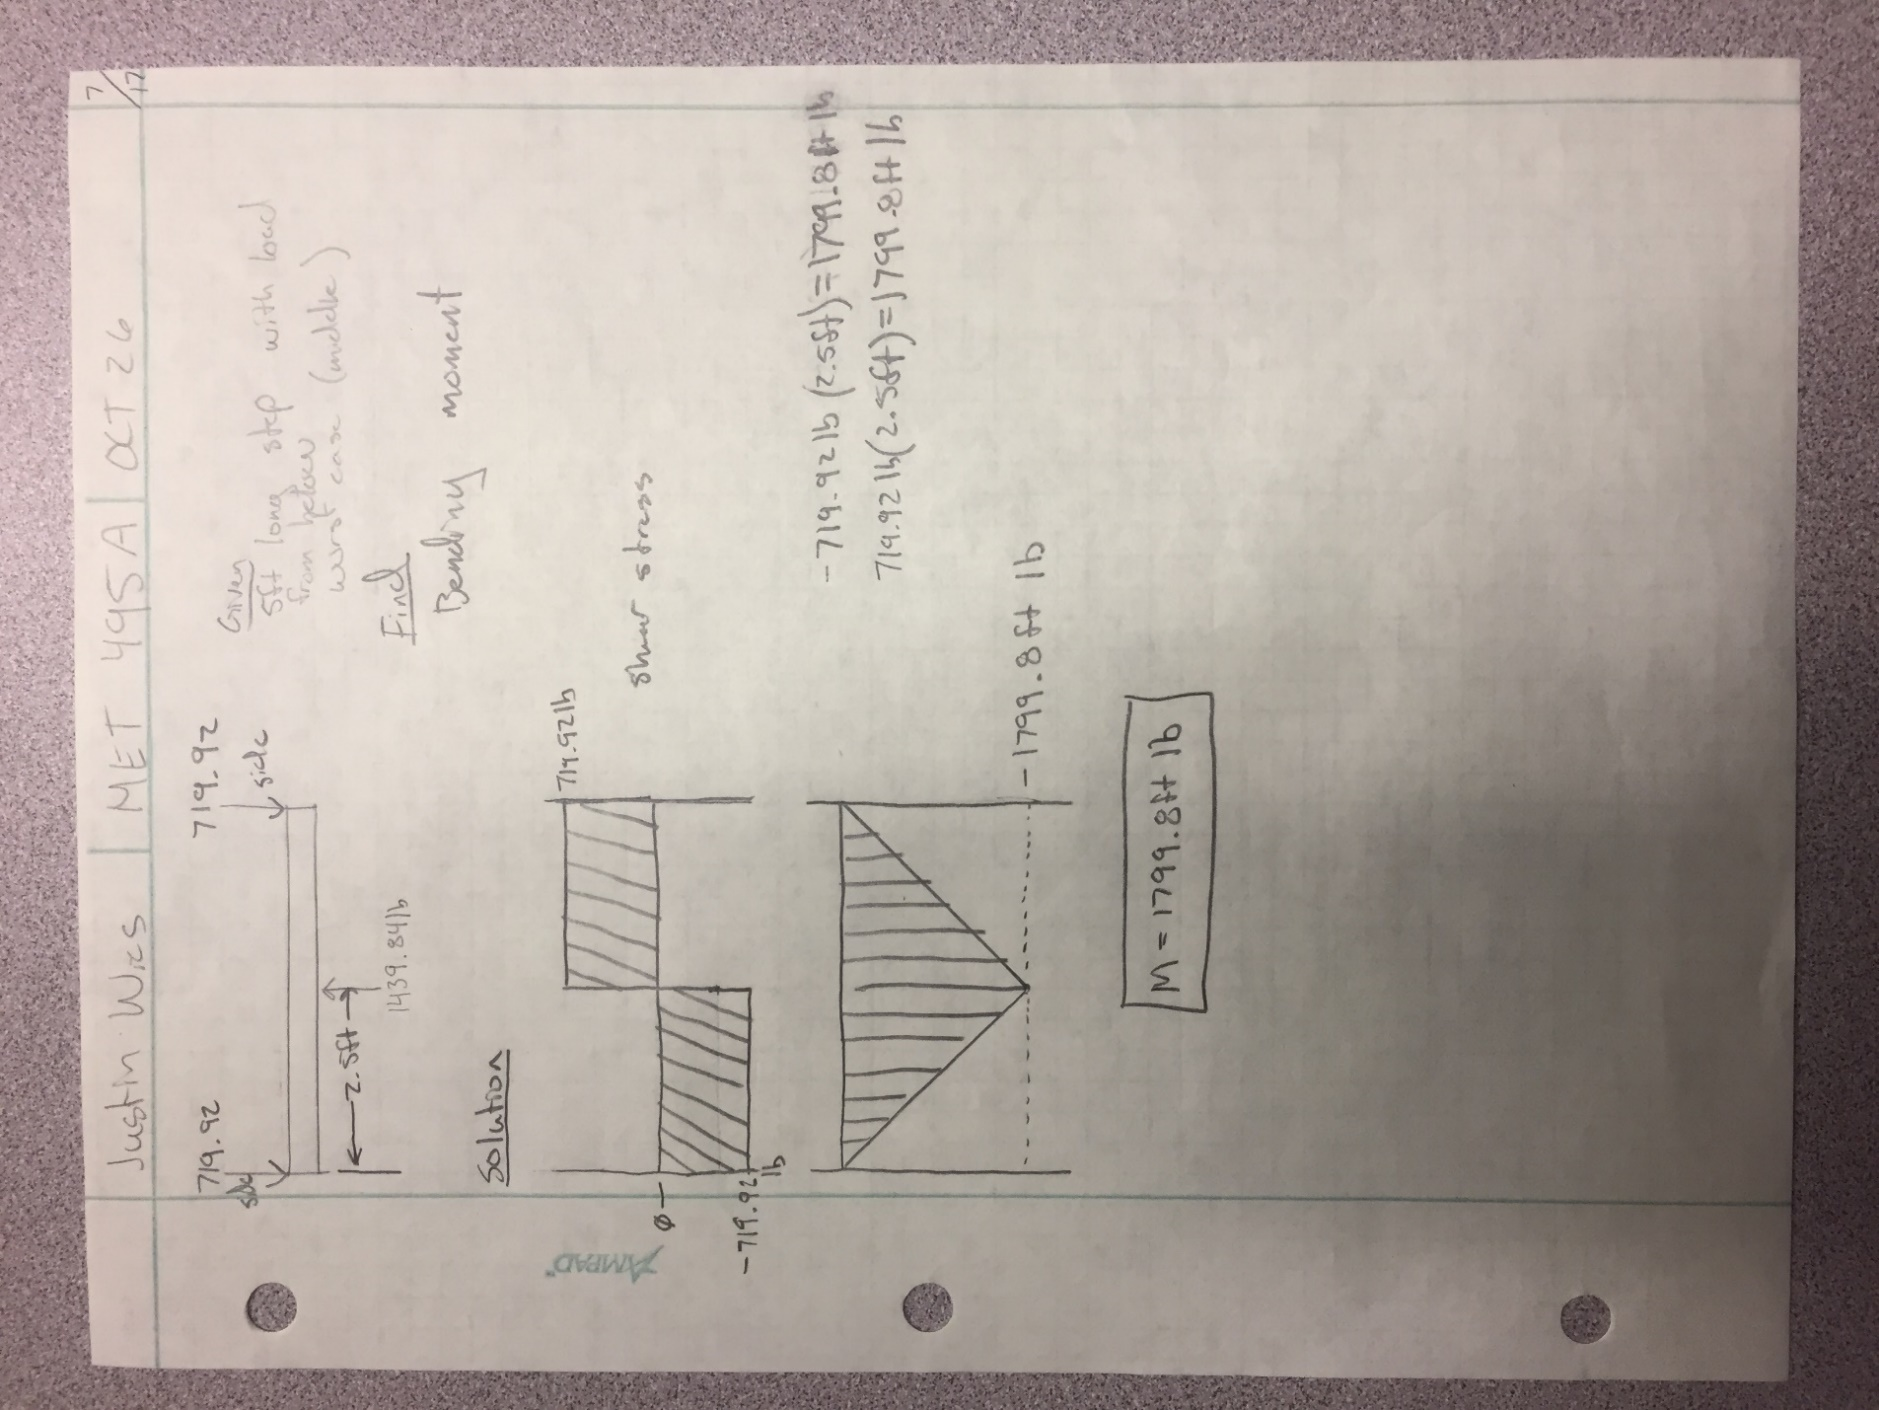 Justin Wies | MET 495A | OCT 26
7/17
719.92
719.92
side
side
2.5ft
1439.84lb
Given
5ft long step with load
from below
worst case (middle)
Find
Bending moment
Solution
719.92lb
0
-719.92
lb
shear stress
-719.92lb (2.5ft)=1799.8ft lb
719.92lb(2.5ft)=1799.8ft lb
-1799.8ft lb
M=1799.8ft lb
AMPAD